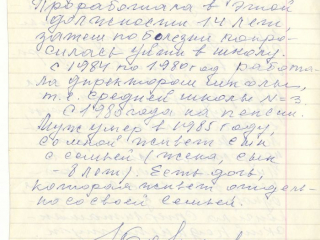 Проработала в этой
должности 14 лет,
затем по болезни попро-
силась уйти в школу.
С 1984 по 1986 год работа-
ла директором школы,
т.е. средней школы №3
С 1986 года на пенсии.
Муж умер в 1985 году,
со мной живет сын
с семьей (жена, сын
- 8 лет). Есть дочь,
которая живет отдель-
но со своей семьей.